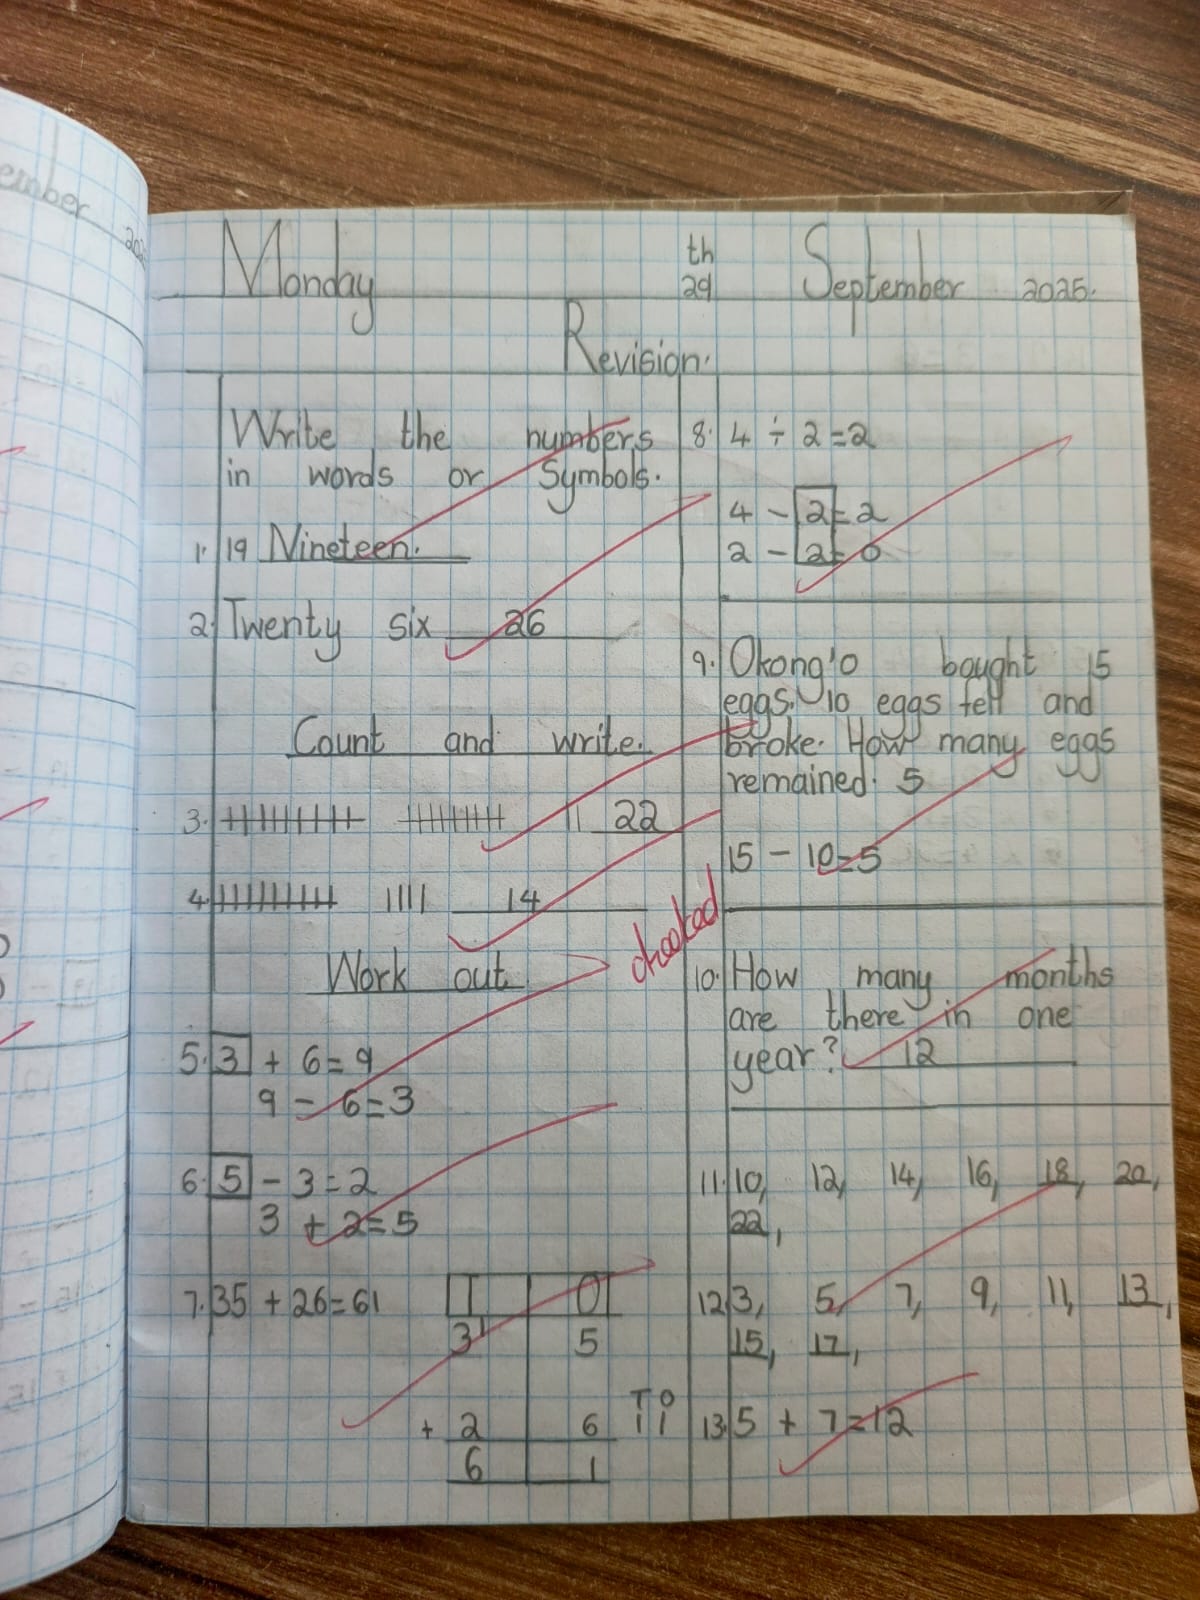 ember
202
Monday 29th September 2025.
Revision.
Write the numbers
in words or Symbols.
1. 19 Nineteen.
2. Twenty six 26
Count and write.
3. 22
4. 14
Work out
5. 3 + 6 = 9
9 - 6 = 3
6. 5 - 3 = 2
3 + 2 = 5
7. 35 + 26 = 61
T O
3 1 5
+ 2 6
6 1
T O
1 1
checked
8. 4 ÷ 2 = 2
4 - 2 = 2
2 - 2 = 0
9. Okong'o bought 15
eggs. 10 eggs fell and
broke. How many eggs
remained. 5
15 - 10 = 5
10. How many months
are there in one
year? 12
11. 10, 12, 14, 16, 18, 20,
22,
12. 3, 5, 7, 9, 11, 13,
15, 17,
13. 5 + 7 = 12